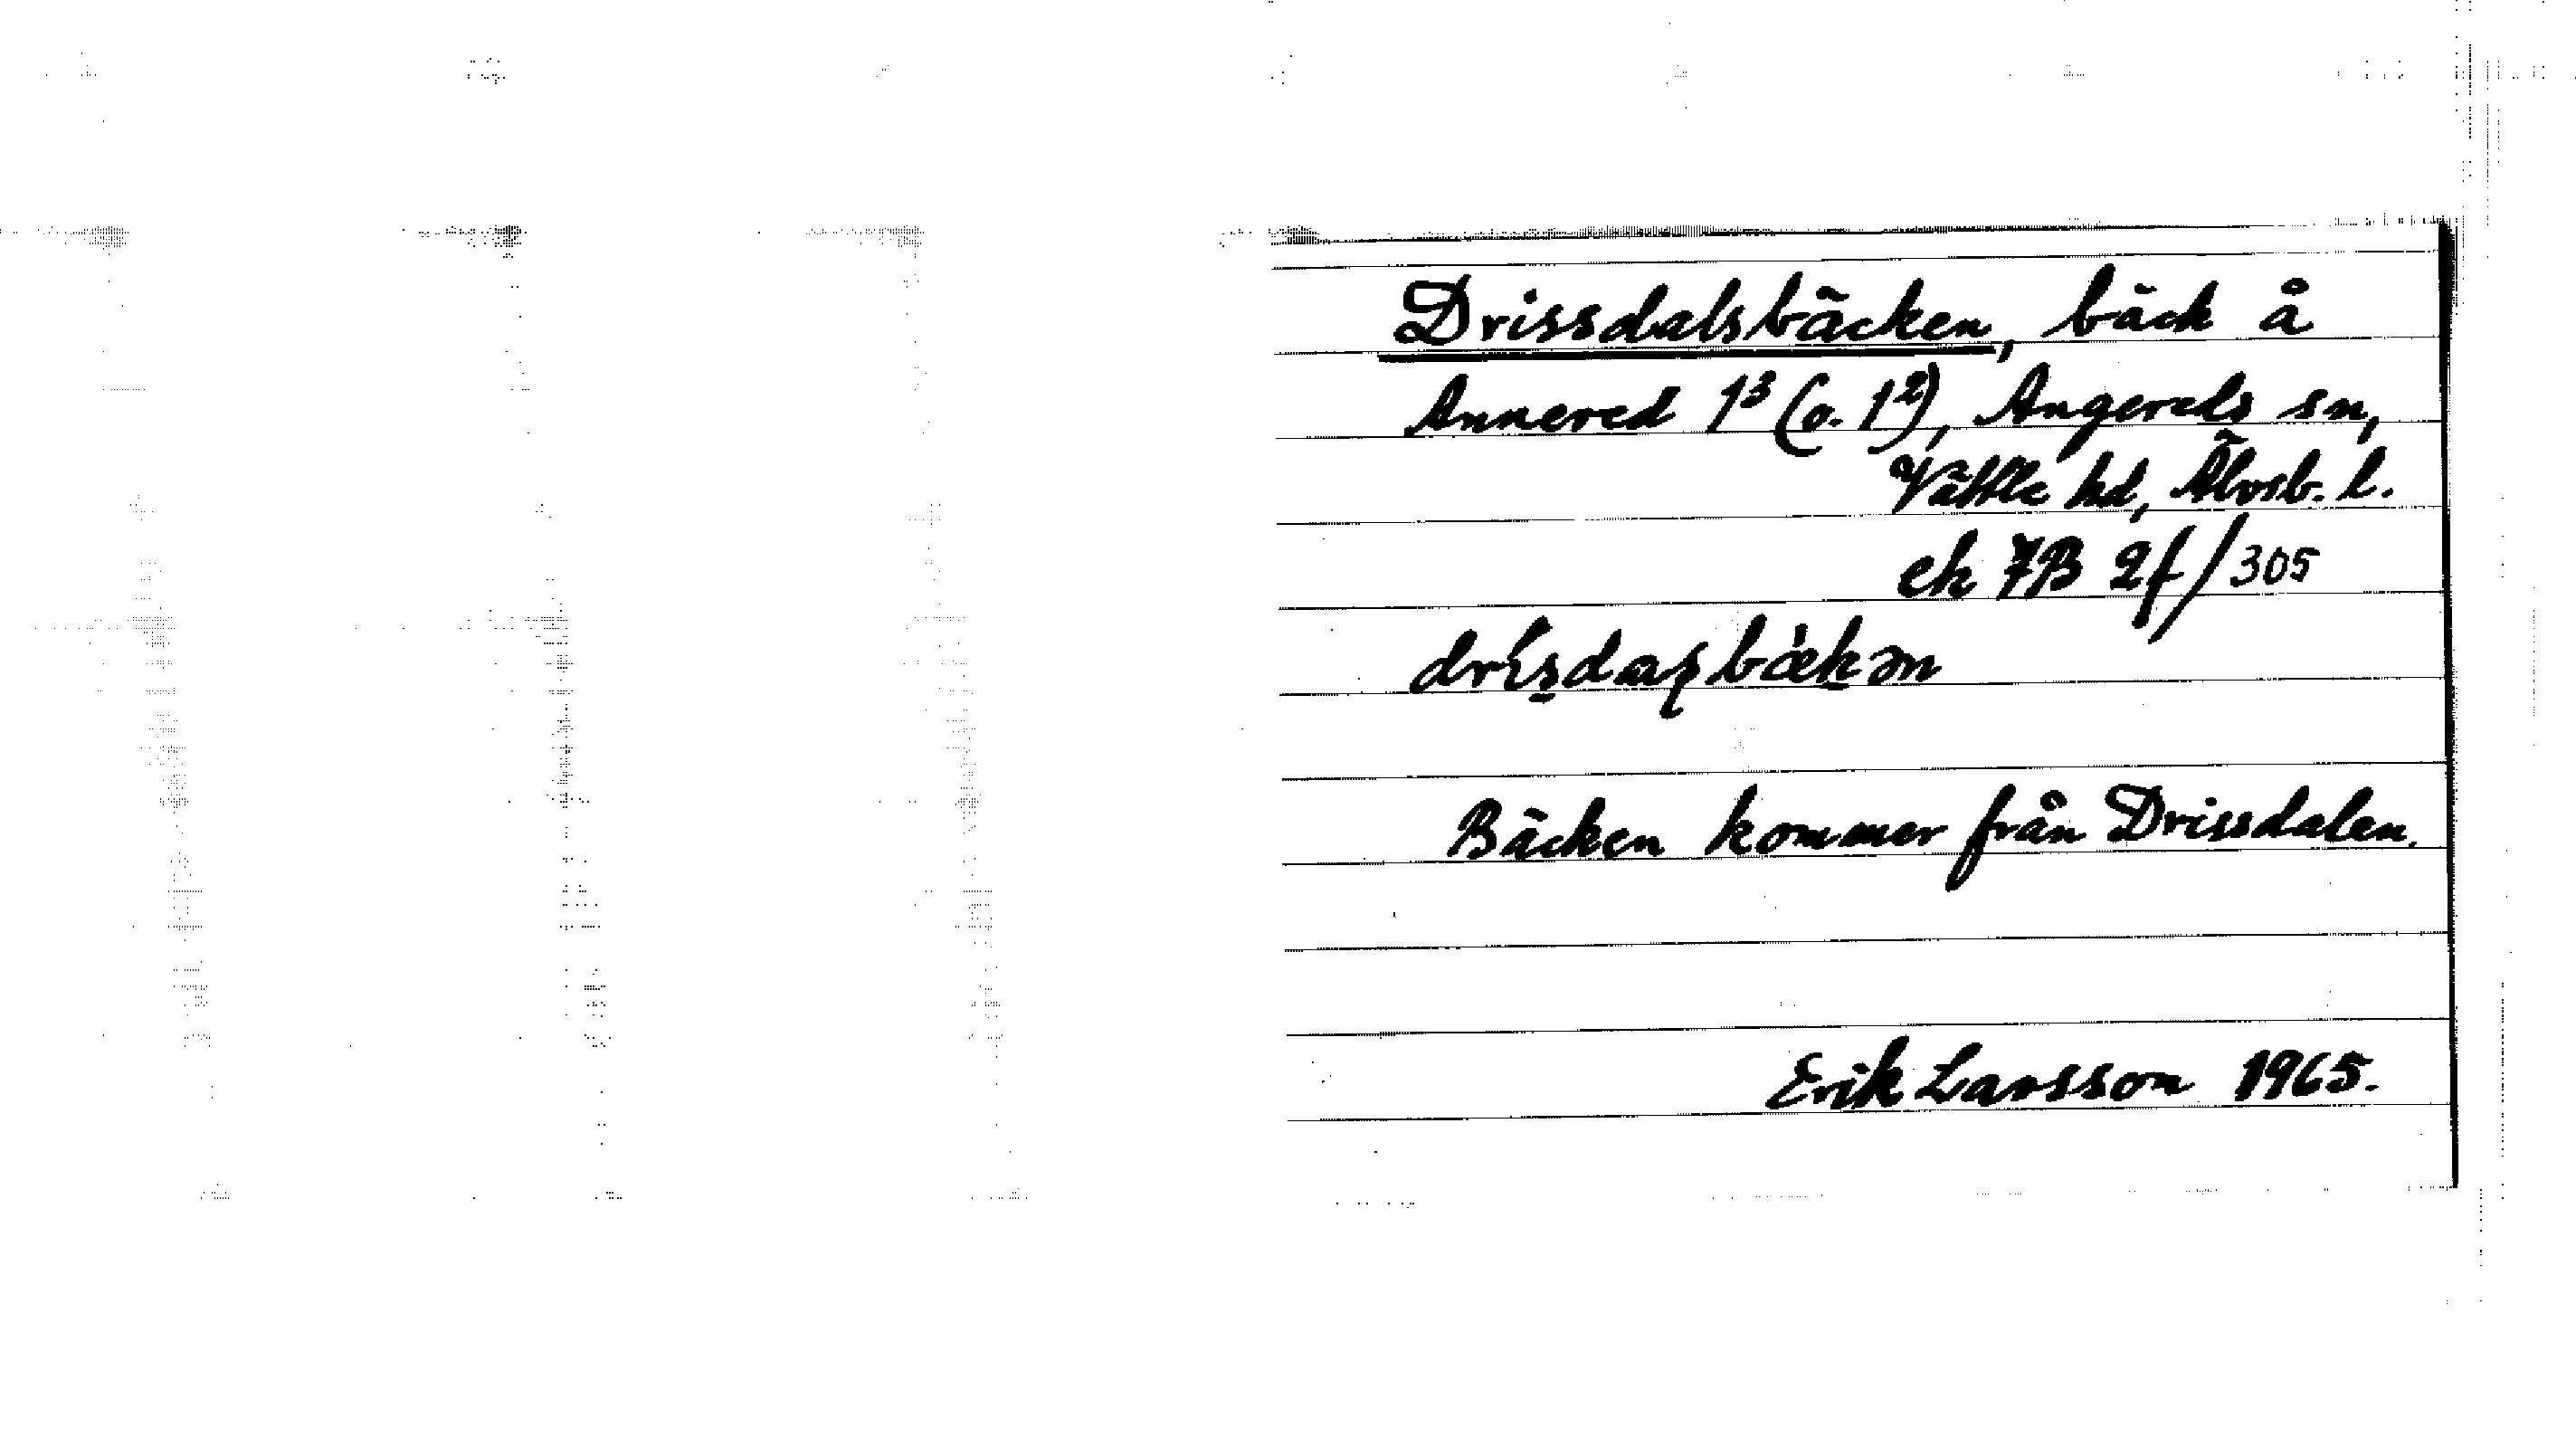 Drissdalsbäcken, bäck å
Annered 1³ (o. 1²), Angereds sn,
Vättle hd, Älvsb. l.
ek 7B 2f/305
Bäcken kommer från Drissdalen.
Erik Larsson 1965.